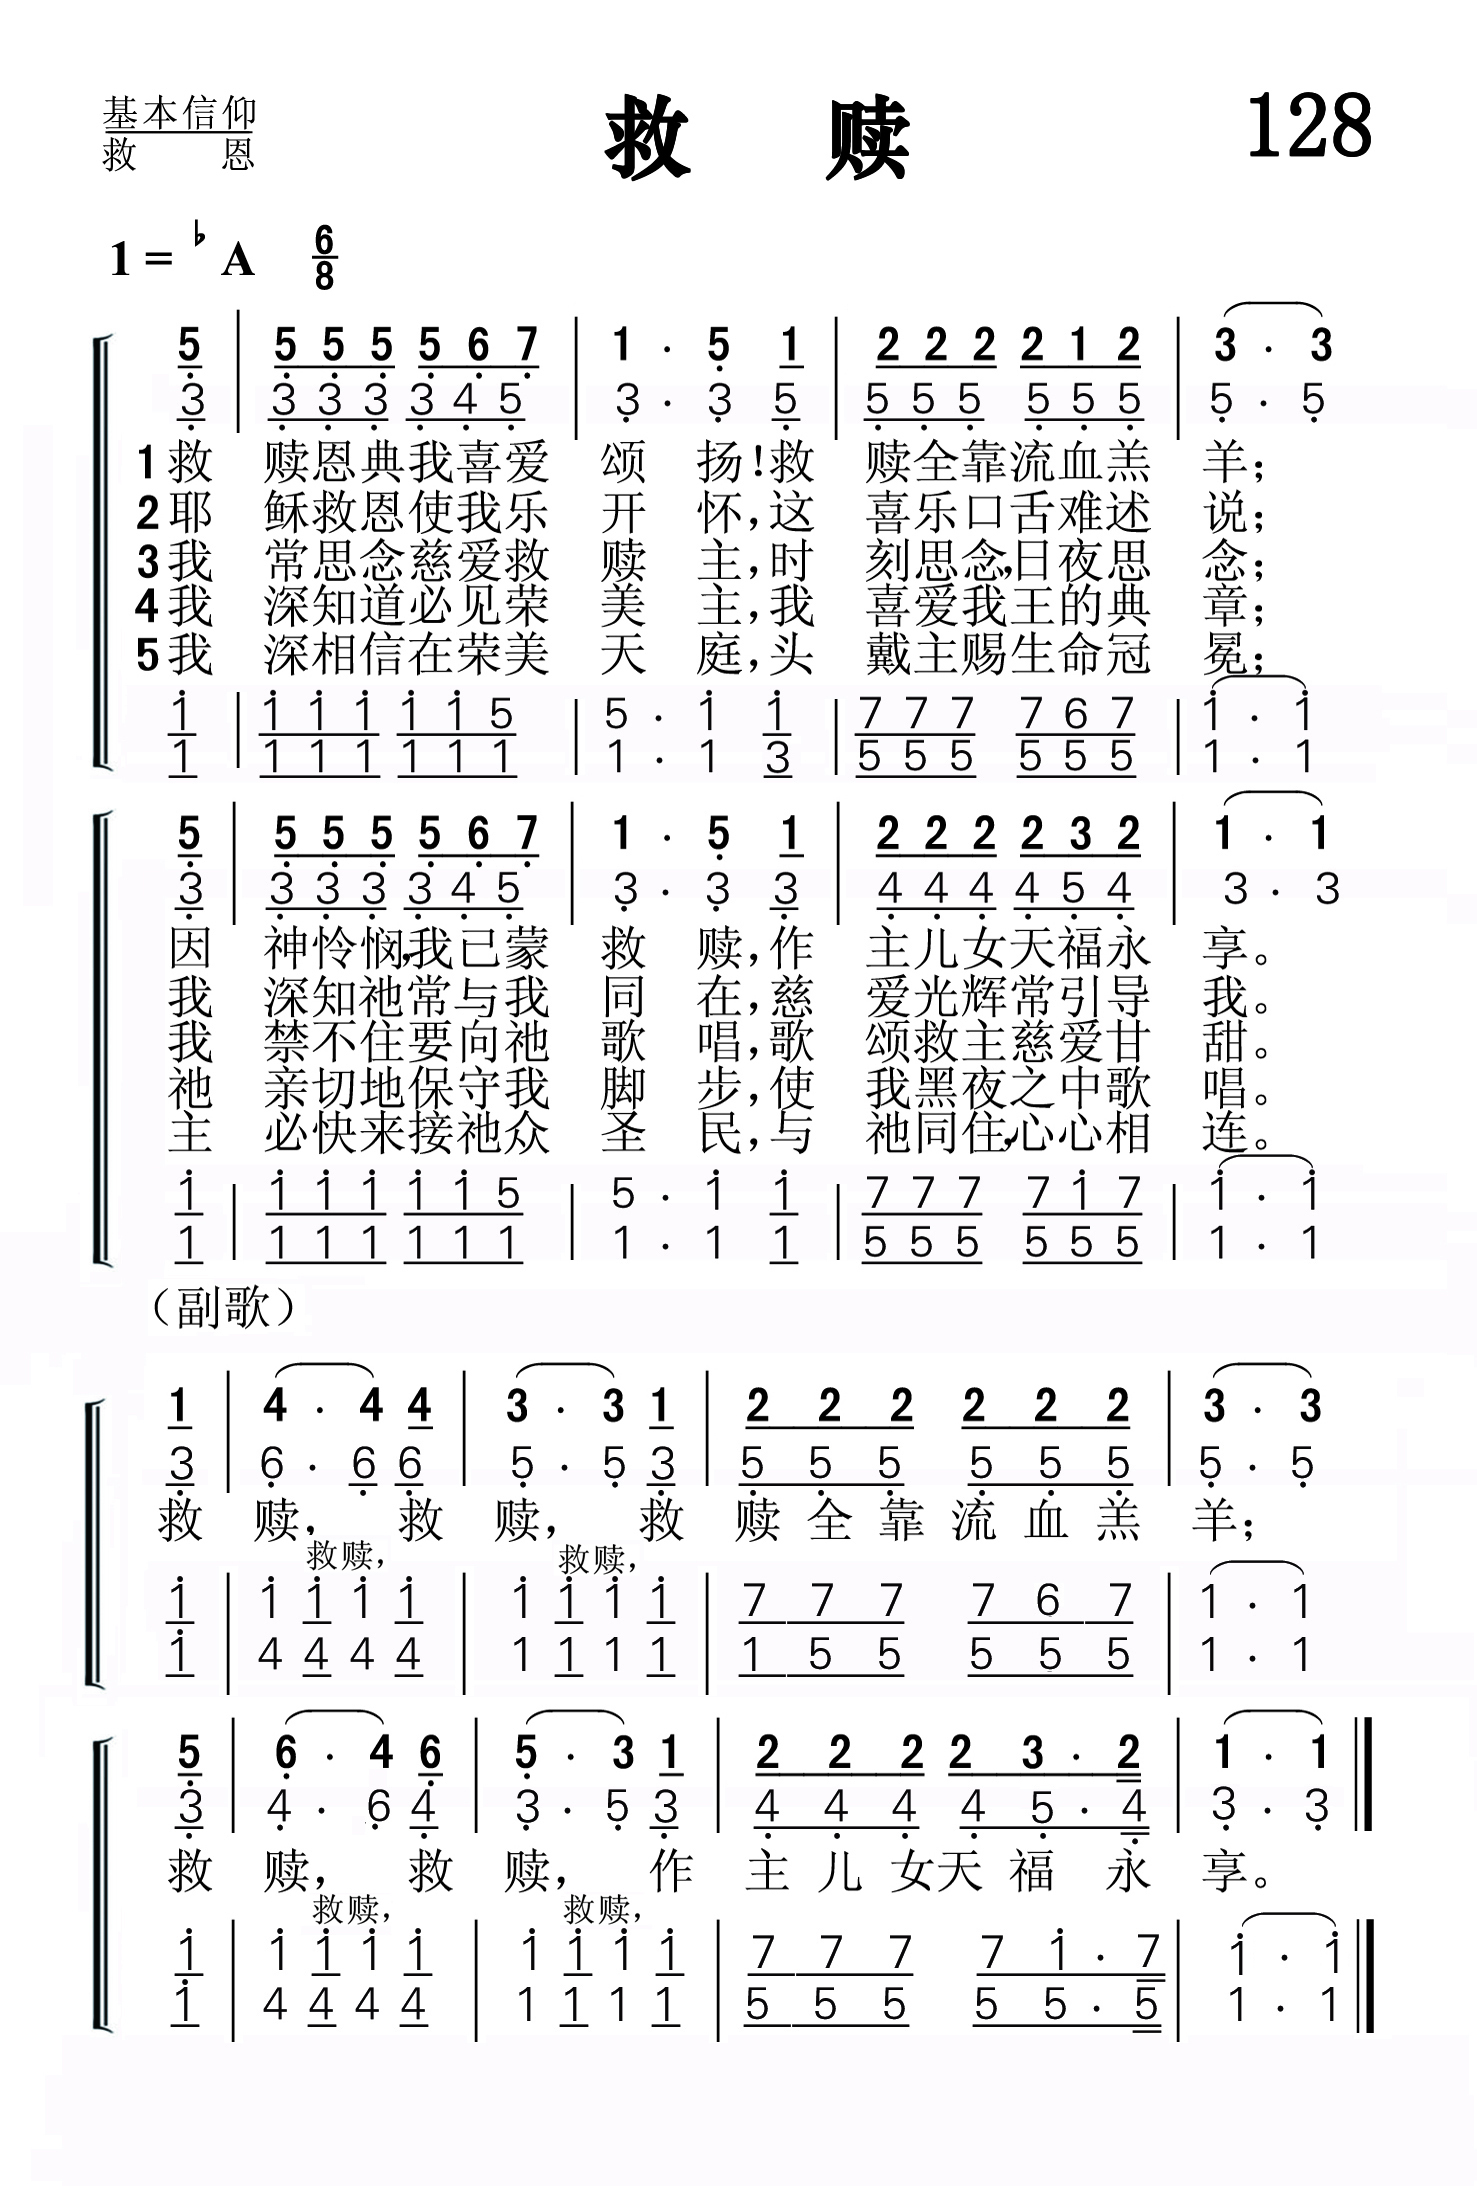 基本信仰
救恩
救 赎
128
1 = ♭A 6/8
5 | 5 5 5 5 6 7 | 1 · 5 1 | 2 2 2 2 1 2 | 3 · 3
3 | 3 3 3 3 4 5 | 3 · 3 5 | 5 5 5 5 5 5 | 5 · 5
1 救 赎恩典我喜爱 颂 扬!救 赎全靠流血羔 羊;
2 耶 稣救恩使我乐 开 怀,这 喜乐口舌难述 说;
3 我 常思念慈爱救 赎 主,时 刻思念,日夜思 念;
4 我 深知道必见荣 美 主,我 喜爱我王的典 章;
5 我 深相信在荣美 天 庭,头 戴主赐生命冠 冕;
1 | 1 1 1 1 1 5 | 5 · 1 1 | 7 7 7 7 6 7 | 1 · 1
1 | 1 1 1 1 1 1 | 1 · 1 3 | 5 5 5 5 5 5 | 1 · 1
5 | 5 5 5 5 6 7 | 1 · 5 1 | 2 2 2 2 3 2 | 1 · 1
3 | 3 3 3 3 4 5 | 3 · 3 3 | 4 4 4 4 5 4 | 3 · 3
因 神怜悯,我已蒙 救 赎,作 主儿女天福永 享。
我 深知祂常与我 同 在,慈 爱光辉常引导 我。
我 禁不住要向祂 歌 唱,歌 颂救主慈爱甘 甜。
祂 亲切地保守我 脚 步,使 我黑夜之中歌 唱。
主 必快来接祂众 圣 民,与 祂同住,心心相 连。
1 | 1 1 1 1 1 5 | 5 · 1 1 | 7 7 7 7 1 7 | 1 · 1
1 | 1 1 1 1 1 1 | 1 · 1 1 | 5 5 5 5 5 5 | 1 · 1
(副歌)
1 | 4 · 4 4 | 3 · 3 1 | 2 2 2 2 2 2 | 3 · 3
3 | 6 · 6 6 | 5 · 5 3 | 5 5 5 5 5 5 | 5 · 5
救 赎, 救 赎, 救 赎 全 靠 流 血 羔 羊;
救赎, 救赎,
1 | 1 1 1 1 | 1 1 1 1 | 7 7 7 7 6 7 | 1 · 1
1 | 4 4 4 4 | 1 1 1 1 | 1 5 5 5 5 5 | 1 · 1
5 | 6 · 4 6 | 5 · 3 1 | 2 2 2 2 3 · 2 | 1 · 1
3 | 4 · 6 4 | 3 · 5 3 | 4 4 4 4 5 · 4 | 3 · 3
救 赎, 救 赎, 作 主 儿 女天 福 永 享。
救赎, 救赎,
1 | 1 1 1 1 | 1 1 1 1 | 7 7 7 7 1 · 7 | 1 · 1
1 | 4 4 4 4 | 1 1 1 1 | 5 5 5 5 5 · 5 | 1 · 1